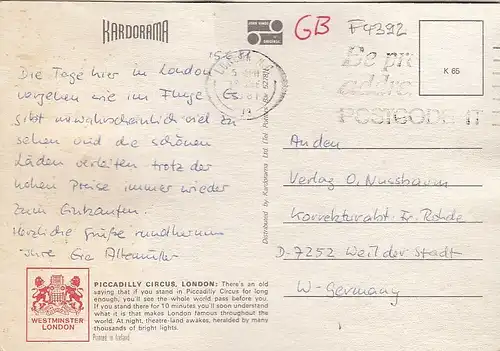 KARDORAMA
JOHN HINDE
ORIGINAL
GB
F4392
K 65
15.6.81
LONDON
Be pr
addre
POSTCODE IT
Die Tage hier in London
vergehen wie im Fluge. Es
gibt unwahrscheinlich viel zu
sehen und die schönen
Läden verleiten trotz der
hohen Preise immer wieder
zum Einkaufen.
Herzliche Grüße rundherum
Ihre Eva
An den
Verlag O. Nussbaum
Korrekturabt. Fr. Rohde
D-7252 Weil der Stadt
W-Germany
Distributed by Kardorama Ltd.
WESTMINSTER
LONDON
PICCADILLY CIRCUS, LONDON: There's an old
saying that if you stand in Piccadilly Circus for long
enough, you'll see the whole world pass before you.
If you stand there for 10 minutes you'll soon understand
what it is that makes London famous throughout the
world. At night, theatre-land awakes, heralded by many
thousands of bright lights.
Printed in Ireland